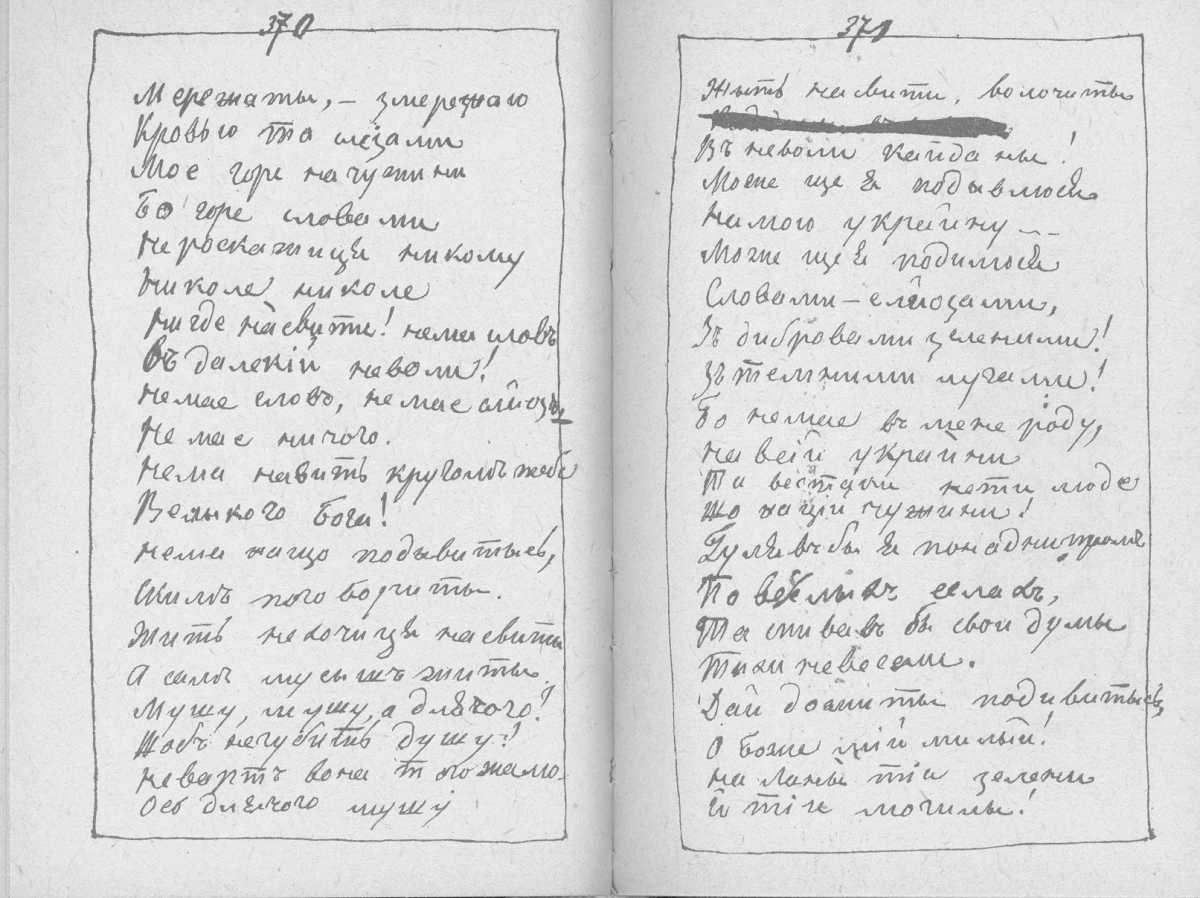 370
Мережаты, – змережаю
Кровью та слёзами
Мое горе на чужини
Бо горе словами
Нероскажеця никому
Николе николе
Нигде насвити! нема словъ
Въ далекій неволи!
Немае словъ, немае слёозъ,
Немае ничого.
Нема навить кругомъ тебе
Велыкого Бога!
Нема нащо подывытысь,
Скимъ поговорыты.
Жить нехочиця насвити
А самъ мусышъ житы.
Мушу, мушу, а длячого?
Щобъ негубить душу?
Невартъ вона того жалю..
Ось длячого мушу
371
Жыть насвити, волочиты
Въ неволи кайданы!
Може ще я подывлюся
На мою украйину ...
Може ще я подилюся
Словами – слёозами,
Зъ дибровами зеленими!
Зъ темними лугами!
Бо немае въ мене роду,
На всій украйини
Та все таки нети люде
Що націй чужини!
Гулявъ бы я понаднипромъ
По веселыхъ селахъ,
Та спивавъ бы свои думы
Тихи невесели.
Дай дожиты подивитысь,
О Боже мій милый!
На ланы тіи зелени
И тіи могилы!